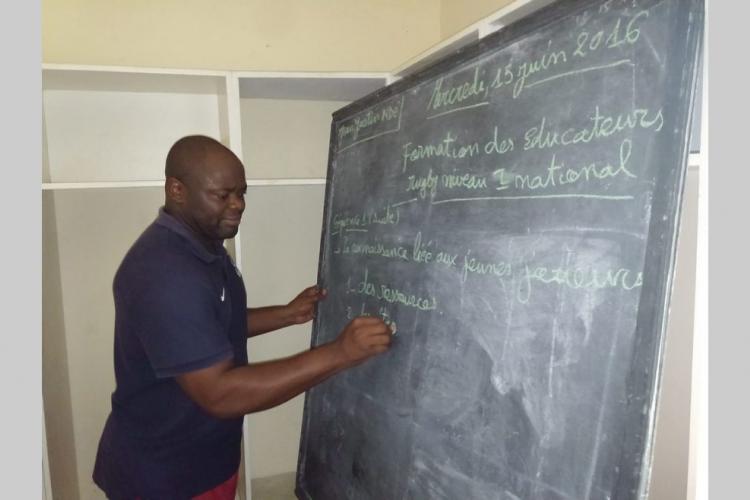 Mercredi, 15 juin 2016
Jean Justin
Formation des Educateurs
rugby niveau I national
Séquence 1 (suite)
- la connaissance liée aux jeunes joueurs
1- des ressources.
2-